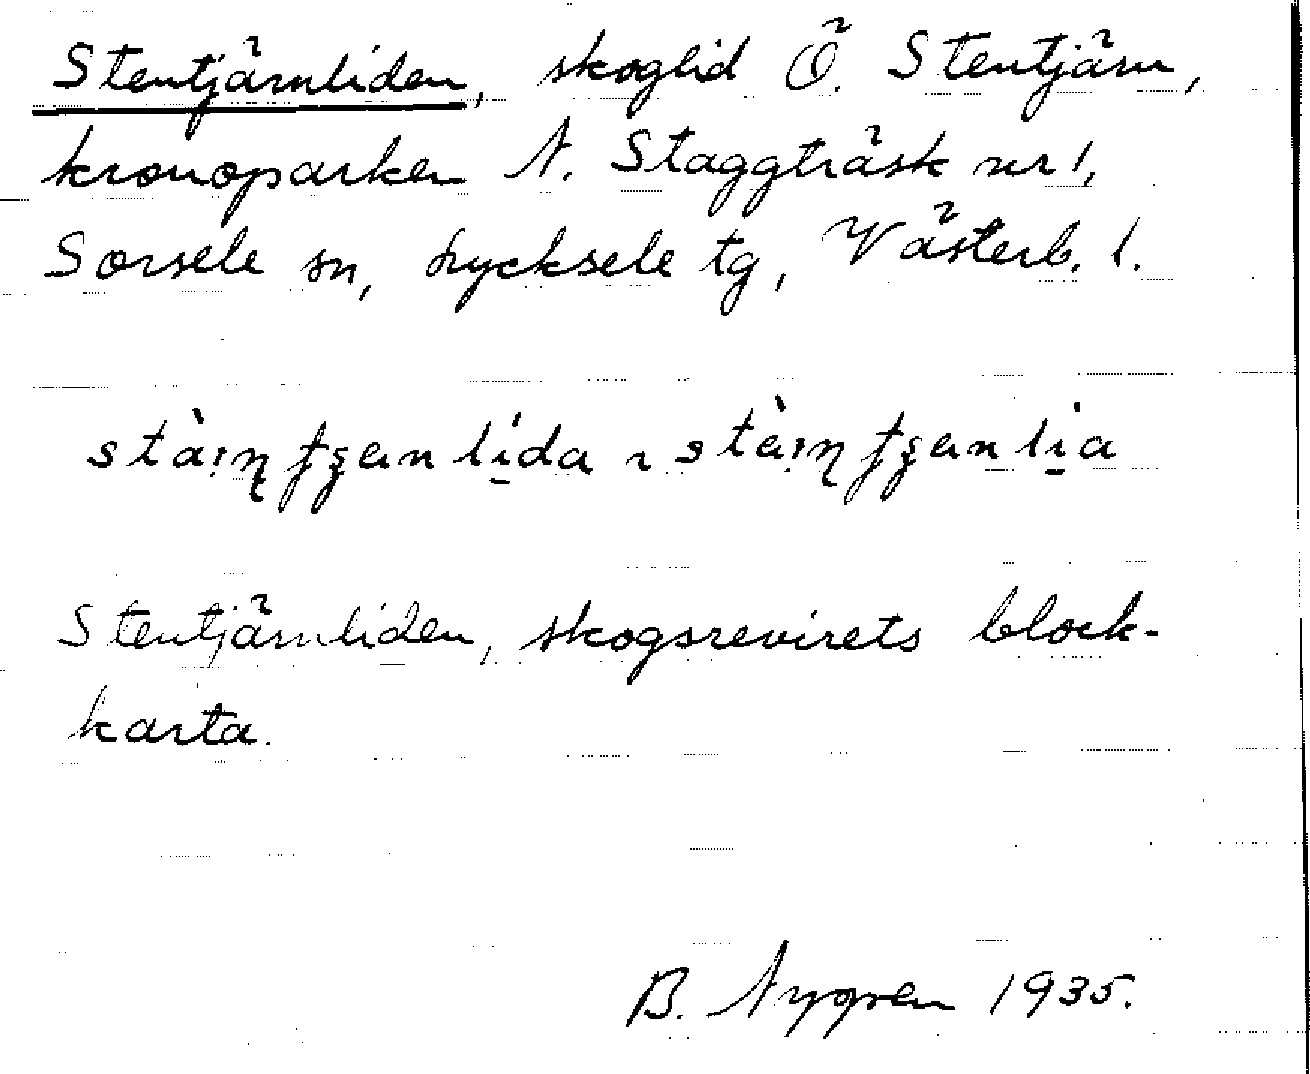 Stentjärnliden, skoglid Ö. Stentjärn,
kronoparken N. Staggträsk nr 1,
Sorsele sn, Lycksele tg, Västerb. l.
Stentjärnliden, skogsrevirets block-
karta.
B. Nygren 1935.